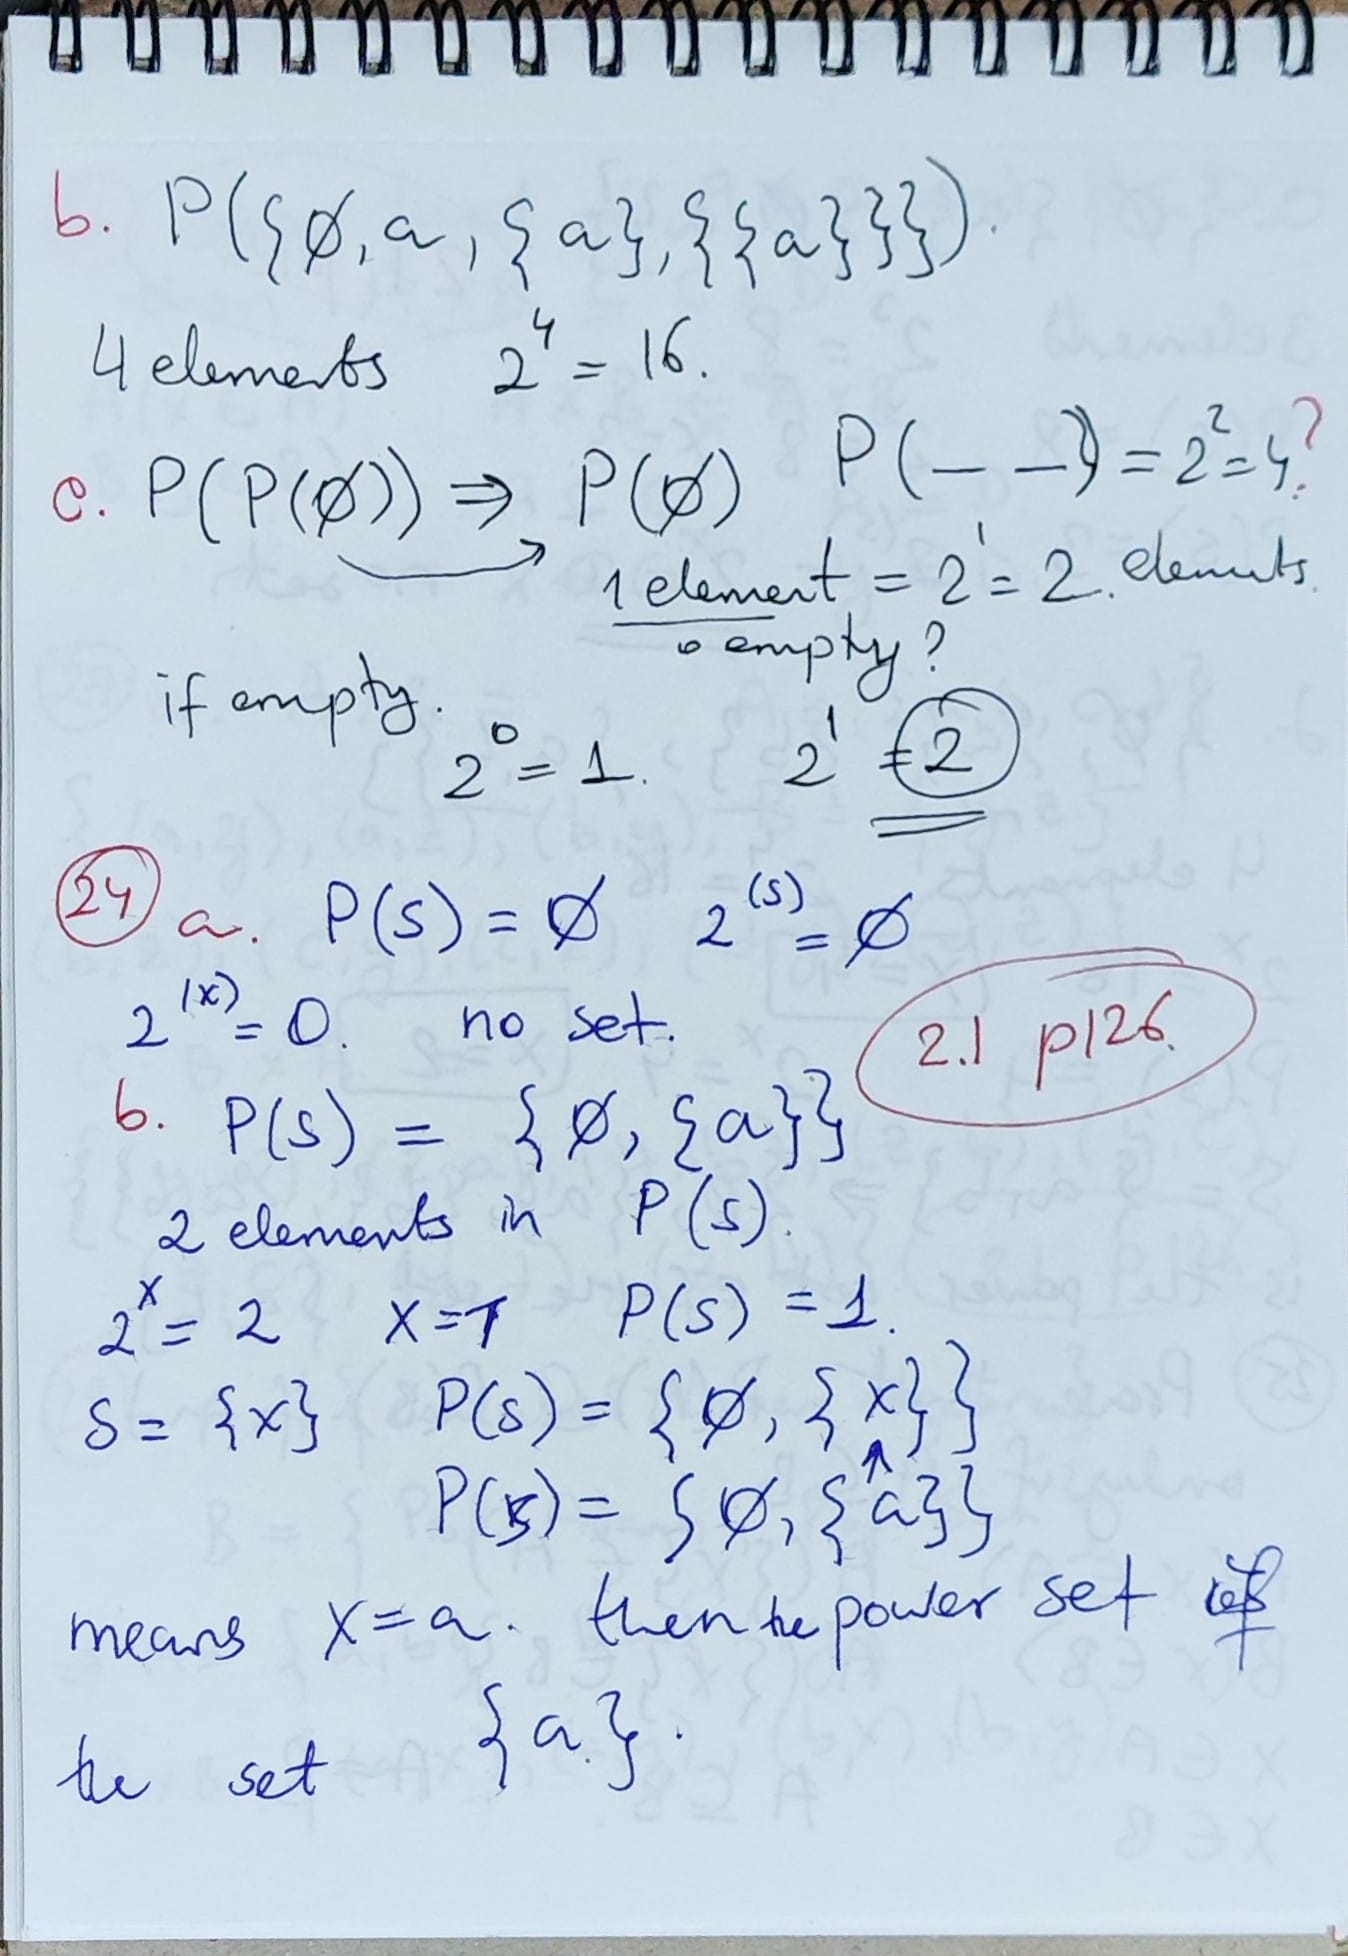 b. P({∅, a, {a}, {{a}}}).
4 elements 2⁴ = 16.
c. P(P(∅)) ⇒ P(∅) P(_ _) = 2² = 4?
1 element = 2¹ = 2. elements.
empty?
if empty.
2⁰ = 1. 2¹ = 2
24 a. P(S) = ∅ 2^(S) = ∅
2^(x) = 0. no set.
2.1 p126.
b. P(S) = {∅, {a}}
2 elements in P(S).
2^x = 2 x = 1 P(S) = 1.
S = {x} P(S) = {∅, {x}}
↑
P(S) = {∅, {a}}
means x = a. then the power set of
the set {a}.